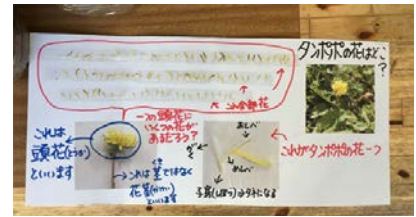 タンポポの花はどこ
?
この全部花
一つの頭花に
いくつの花が
あるだろう?
これは
頭花(とうか)
といいます
これは茎ではなく
くき
花茎(かけい)
といいます
おしべ
がく
めしべ
子房(しぼう)→タネになる
これがタンポポの花一つ